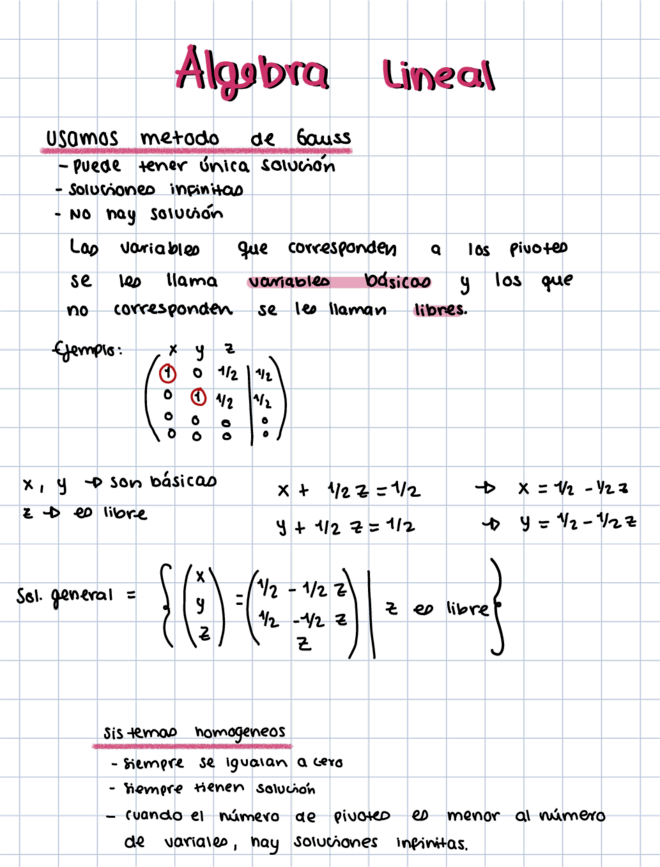 Algebra Lineal
Usamos metodo de Gauss
- Puede tener única solución
- Soluciones infinitas
- No hay solución
Las variables que corresponden a los pivotes
se les llama variables básicas y los que
no corresponden se les llaman libres.
Ejemplo: x y z
1 0 1/2 | 1/2
0 1 1/2 | 1/2
0 0 0 | 0
0 0 0 | 0
x, y → son básicas
z → es libre
x + 1/2 z = 1/2 → x = 1/2 - 1/2 z
y + 1/2 z = 1/2 → y = 1/2 - 1/2 z
Sol. general = { (x y z) = (1/2 - 1/2 z, 1/2 - 1/2 z, z) | z es libre }
Sistemas homogeneos
- Siempre se igualan a cero
- Siempre tienen solución
- cuando el número de pivotes es menor al número
de variales, hay soluciones infinitas.